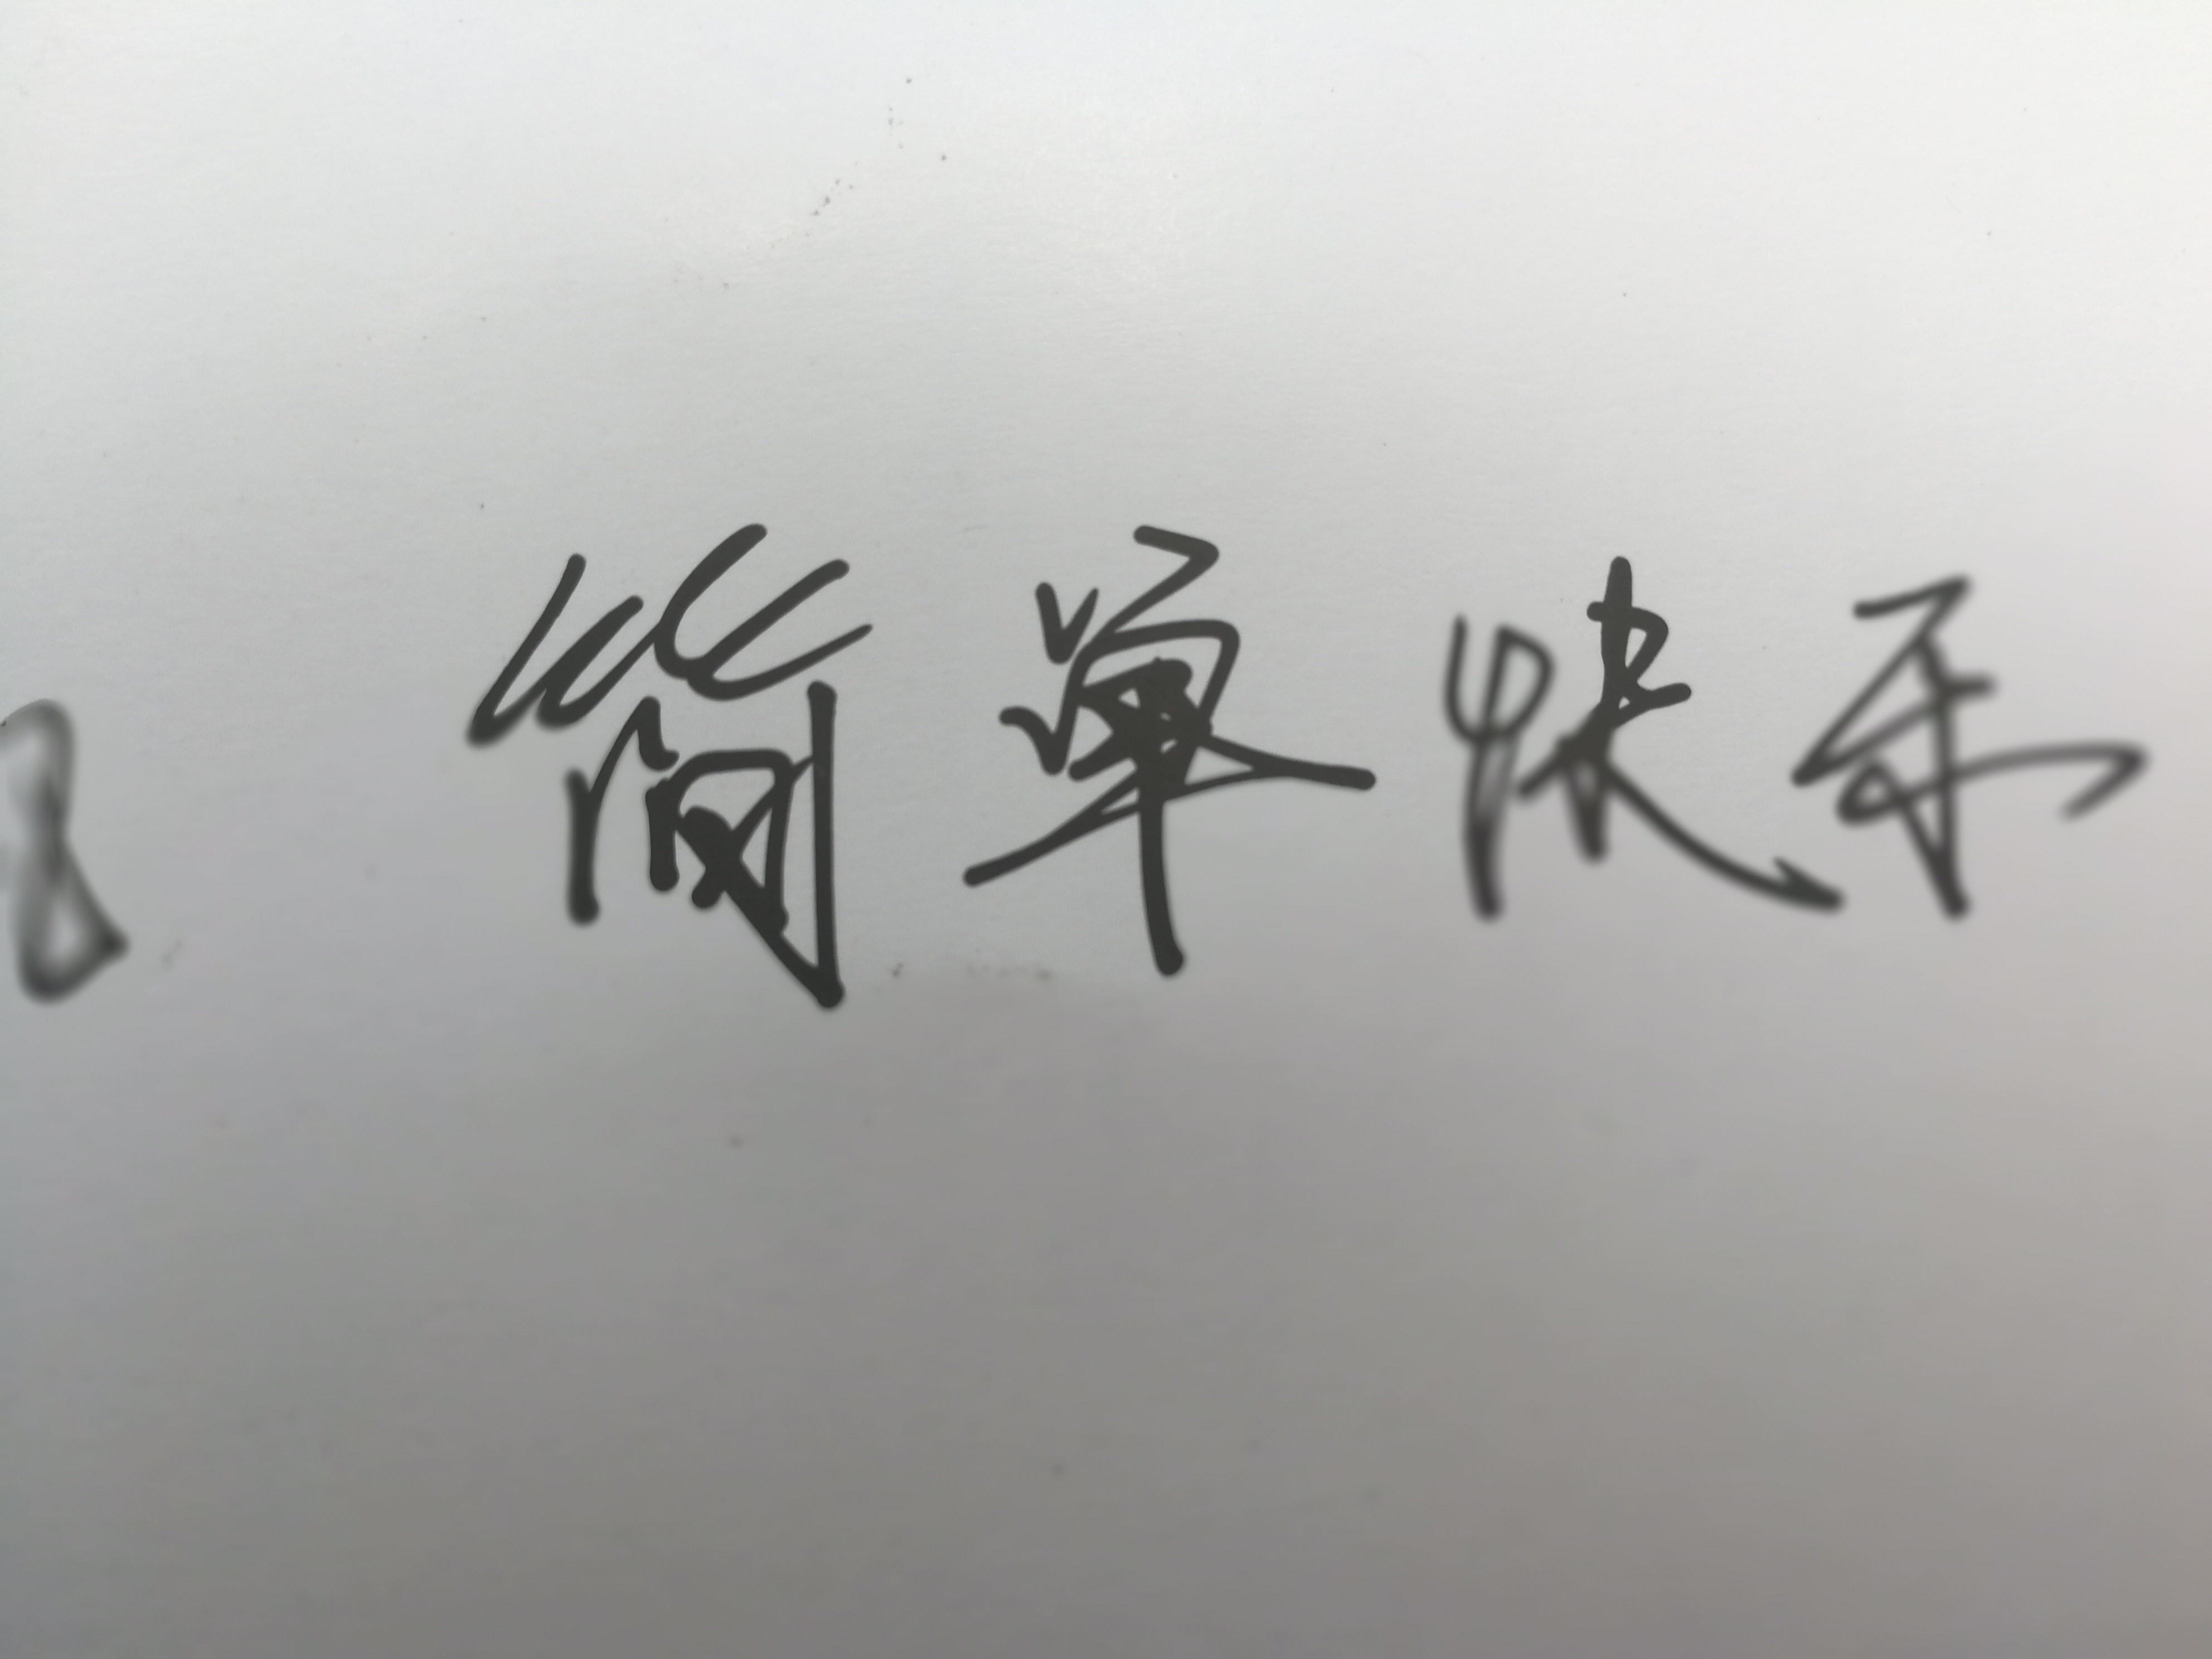 简单快乐